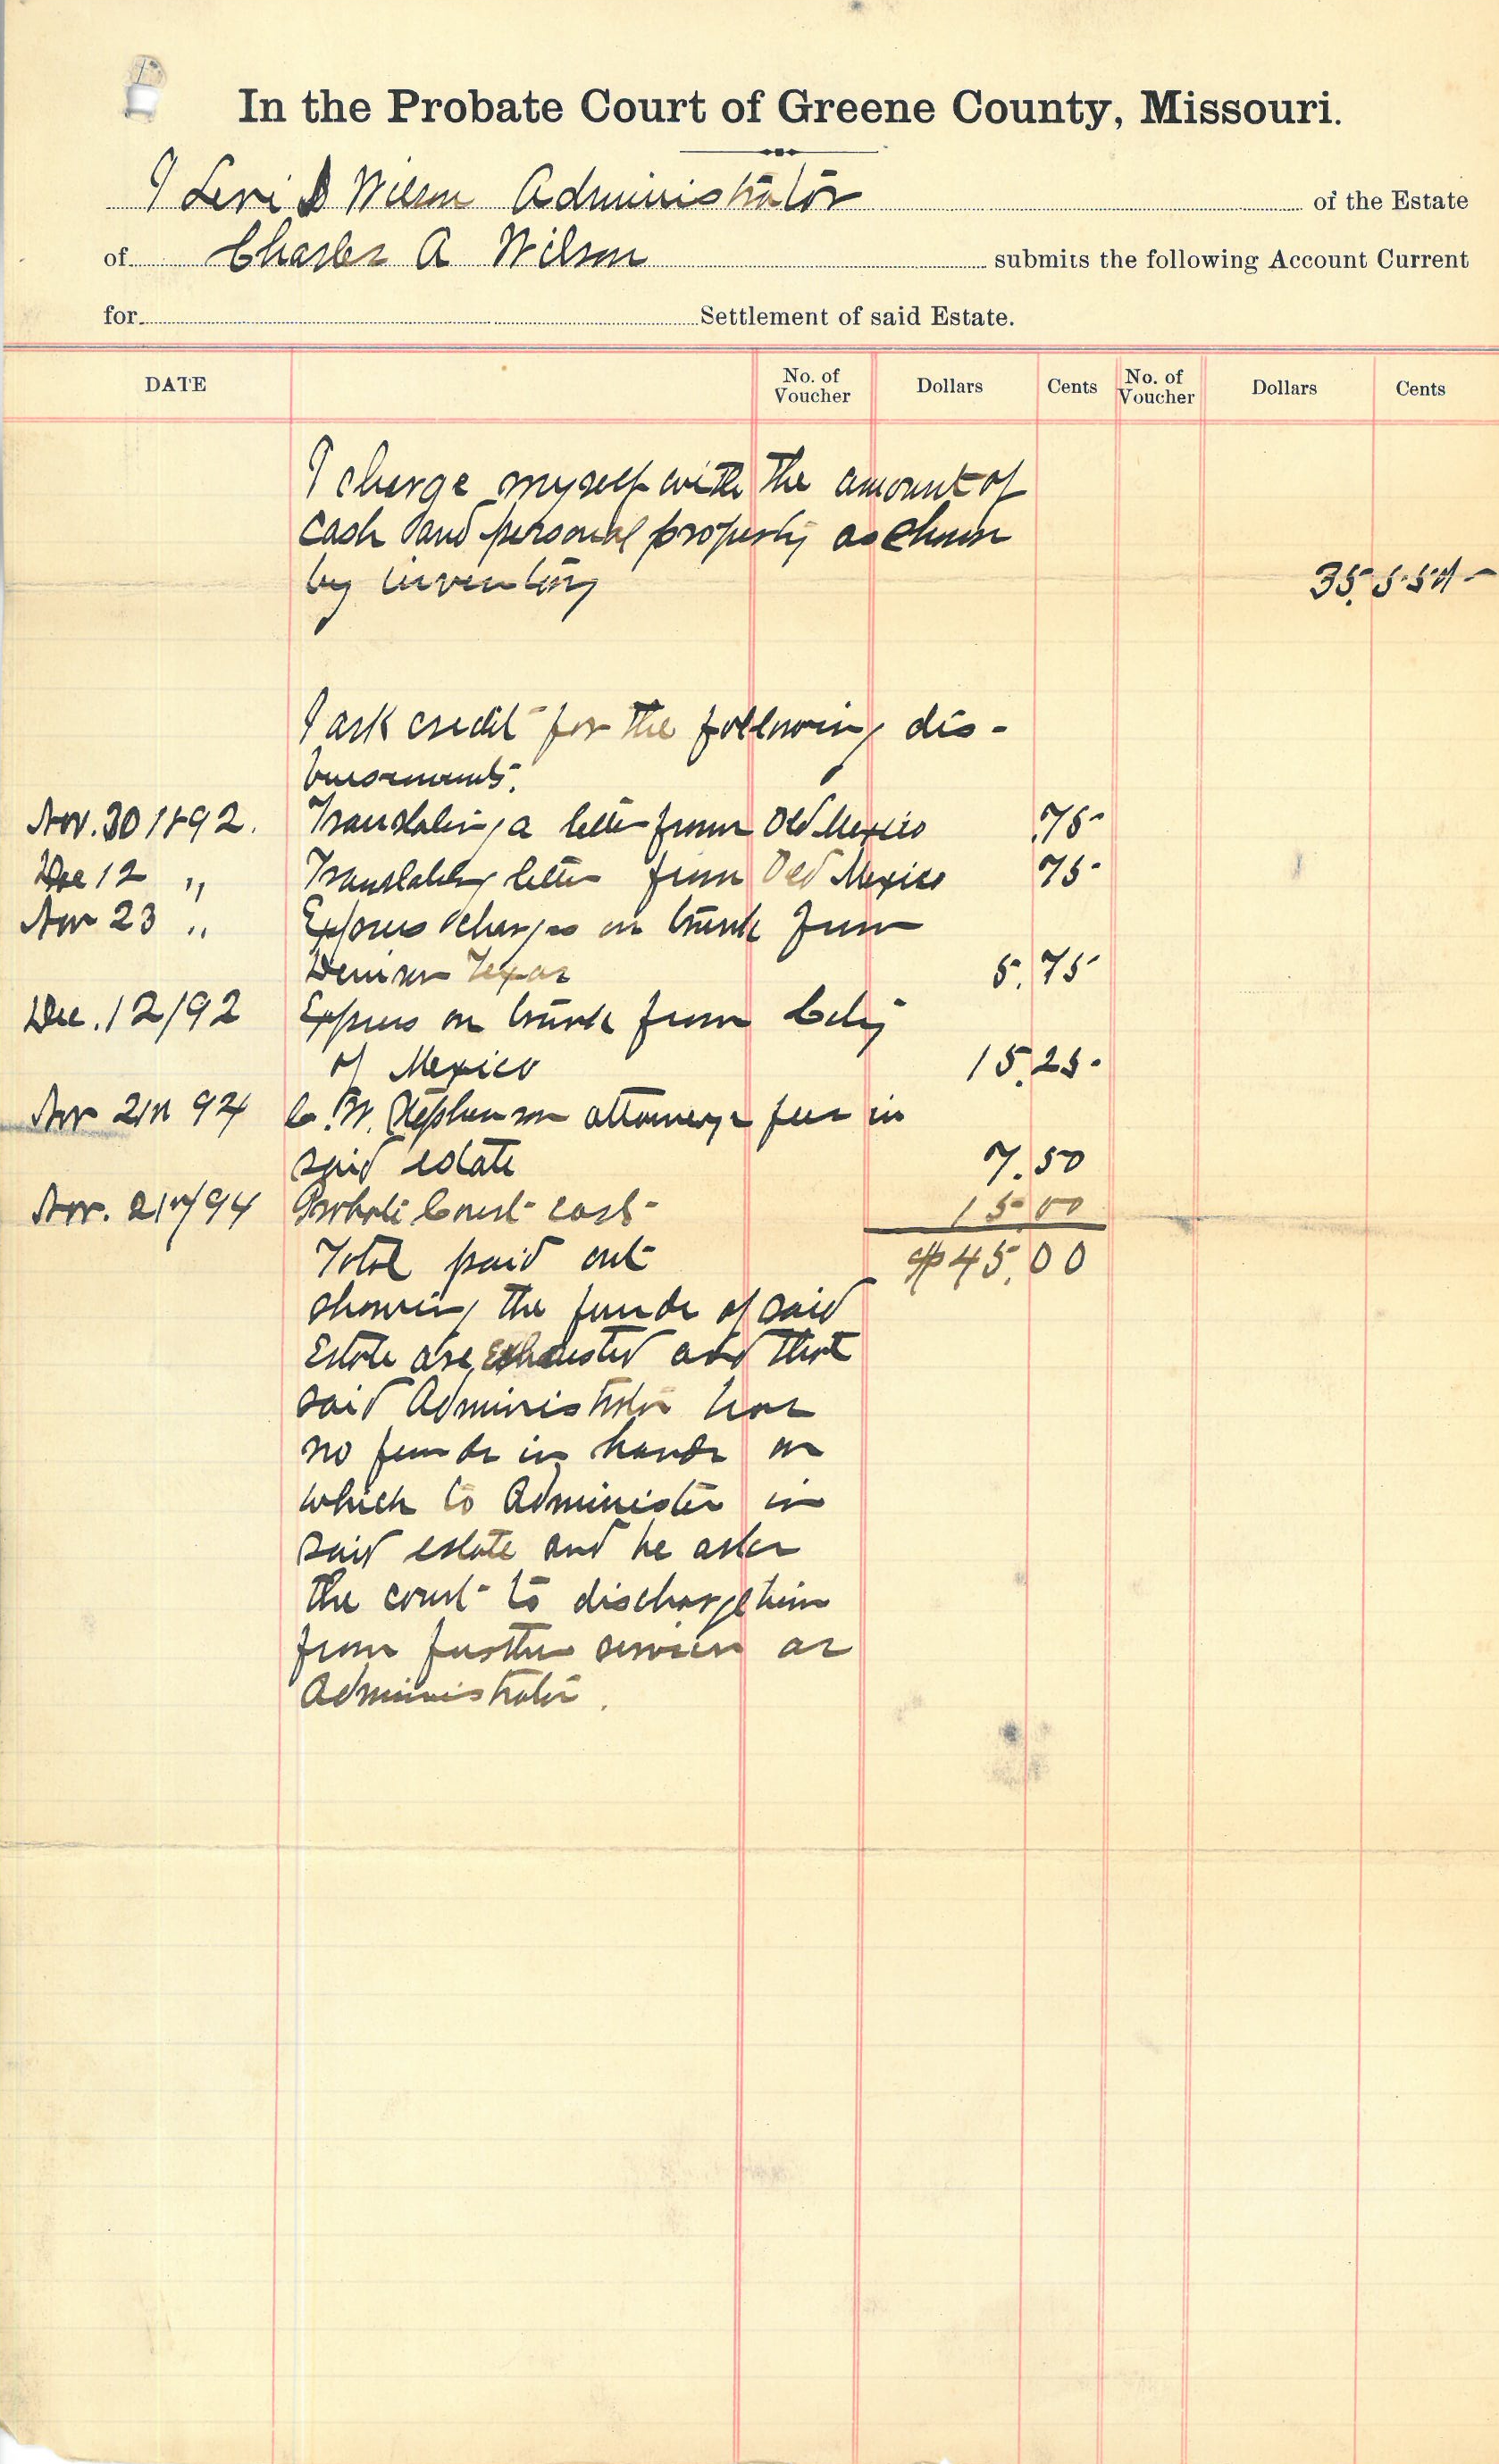 In the Probate Court of Greene County, Missouri.
I Levi D Wilson Administrator of the Estate
of Charles A Wilson submits the following Account Current
for Settlement of said Estate.
DATE No. of Voucher Dollars Cents No. of Voucher Dollars Cents
I charge myself with the amount of
cash and personal property as shown
by inventory 35.
I ask credit for the following dis-
bursements.
Nov. 30 1892. Translating a letter from Old Mexico .75
Dec 12 " Translating letter from Old Mexico 75
Nov 23 " Express charges on trunk from
Denison Texas 5.75
Dec. 12/92 Express on trunk from City
of Mexico 15.25
Nov 21st 94 C. W. Stephenson attorneys fees in
said estate 7.50
Nov. 21st/94 Probate Court cost 15 00
Total paid out $45.00
showing the funds of said
Estate are Exhausted and that
said Administrator has
no funds in hands on
which to Administer in
said estate and he asks
the court to discharge him
from further services as
Administrator.